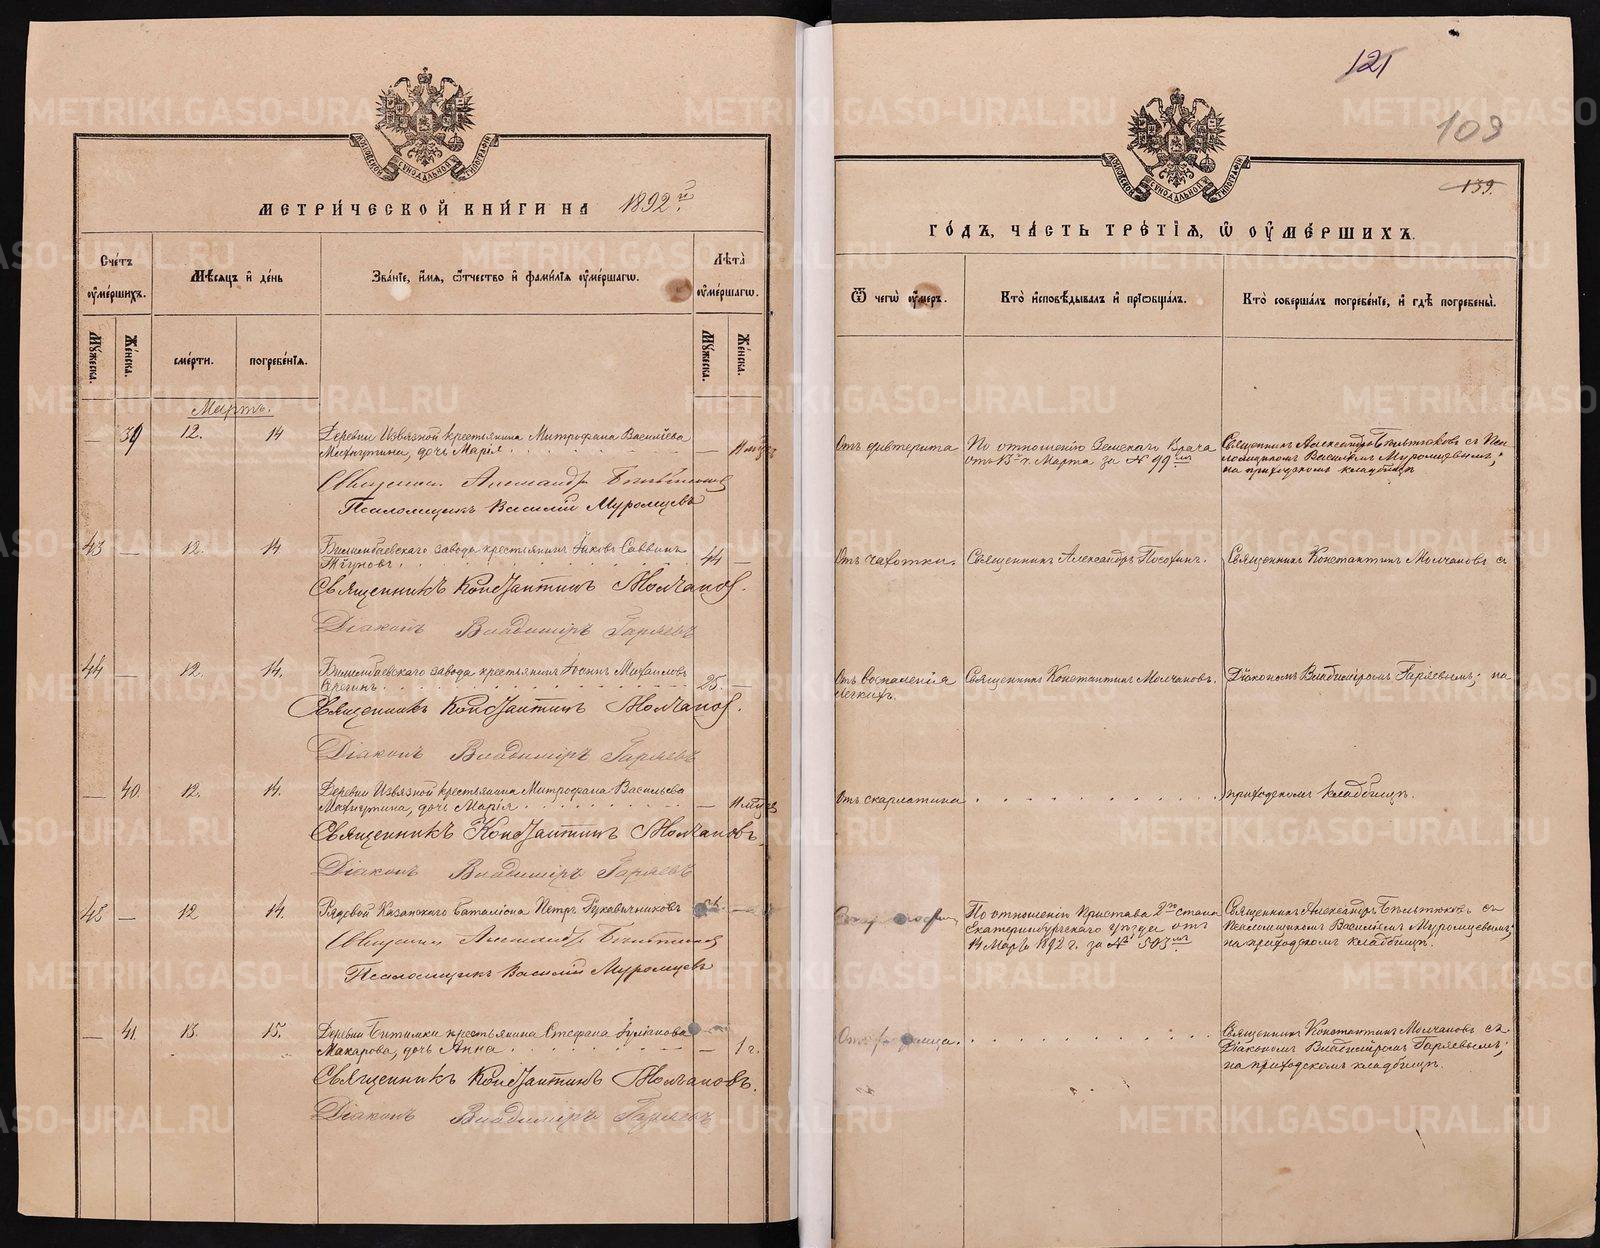 МЕТРИ́ЧЕСКОЙ КНИ́ГИ НА 1892й
Сче́тъ ѹ҆ме́ршихъ.
Мѣ́сяцъ и҆ де́нь
Зва́нїе, и҆́мя, ѻ҆́тчество и҆ фами́лїя ѹ҆ме́ршагѡ.
Лѣ́та ѹ҆ме́ршагѡ.
Мꙋ́жеска.
Же́нска.
сме́рти.
погребе́нїя.
Мꙋ́жеска.
Же́нска.
Мартъ.
— 39 12. 14 Деревни Извязной крестьянина Митрофана Васильева
дочь Марія — 11 мѣс
Священник Александръ
Псаломщикъ Василій Муромцевъ
43 — 12. 14 Билимбаевскаго завода крестьянинъ Іаковъ Саввинъ
44 —
Священникъ Константинъ Молчановъ.
Діаконъ Владиміръ Гаряевъ
44 — 12. 14. Билимбаевскаго завода крестьянинъ Іоаннъ Михаиловъ
25. —
Священникъ Константинъ Молчановъ.
Діаконъ Владиміръ Гаряевъ
— 40. 12. 14. Деревни Извязной крестьянина Митрофана Васильева
дочь Марія — 11 мѣс
Священникъ Константинъ Молчановъ.
Діаконъ Владиміръ Гаряевъ
45 — 12 14. Рядовой Казанскаго баталіона Петръ Рукавичниковъ
Священник Александръ
Псаломщикъ Василій Муромцевъ
— 41. 13. 15. Деревни Битимки крестьянина Стефана
Макарова, дочь Анна — 1 г.
Священникъ Константинъ Молчановъ.
Діаконъ Владиміръ Гаряевъ
121
109
139.
ГО́ДЪ, ЧА́СТЬ ТРЕ́ТЇЯ, Ѡ҆ ОУ҆МЕ́РШИХЪ.
Ѿ чегѡ̀ ѹ҆́меръ.
Кто̀ и҆сповѣ́дывалъ и҆ прїѡбща́лъ.
Кто̀ соверша́лъ погребе́нїе, и҆ гдѣ̀ погребены̀.
Отъ дифтерита
По отношенію Земскаго Врача
отъ 13 г. Марта за № 99
Священникъ Александръ Бильтюковъ съ Пса-
ломщикомъ Василіемъ Муромцевымъ;
на приходскомъ кладбищѣ
Отъ чахотки.
Священникъ Александръ
Священникъ Константинъ Молчановъ съ
Отъ воспаленія
легкихъ.
Священникъ Константинъ Молчановъ.
Діакономъ Владиміромъ Гаряевымъ; на
Отъ скарлатины
приходскомъ кладбищѣ.
По отношенію Пристава 2го стана
Екатеринбургскаго уѣзда отъ
14 Мартъ 1892 г. за № 503
Священникъ Александръ Бильтюковъ съ
Псаломщикомъ Василіемъ Муромцевымъ;
на приходскомъ кладбищѣ.
Священникъ Константинъ Молчановъ съ
Діакономъ Владиміромъ Гаряевымъ;
на приходскомъ кладбищѣ.
METRIKI.GASO-URAL.RU